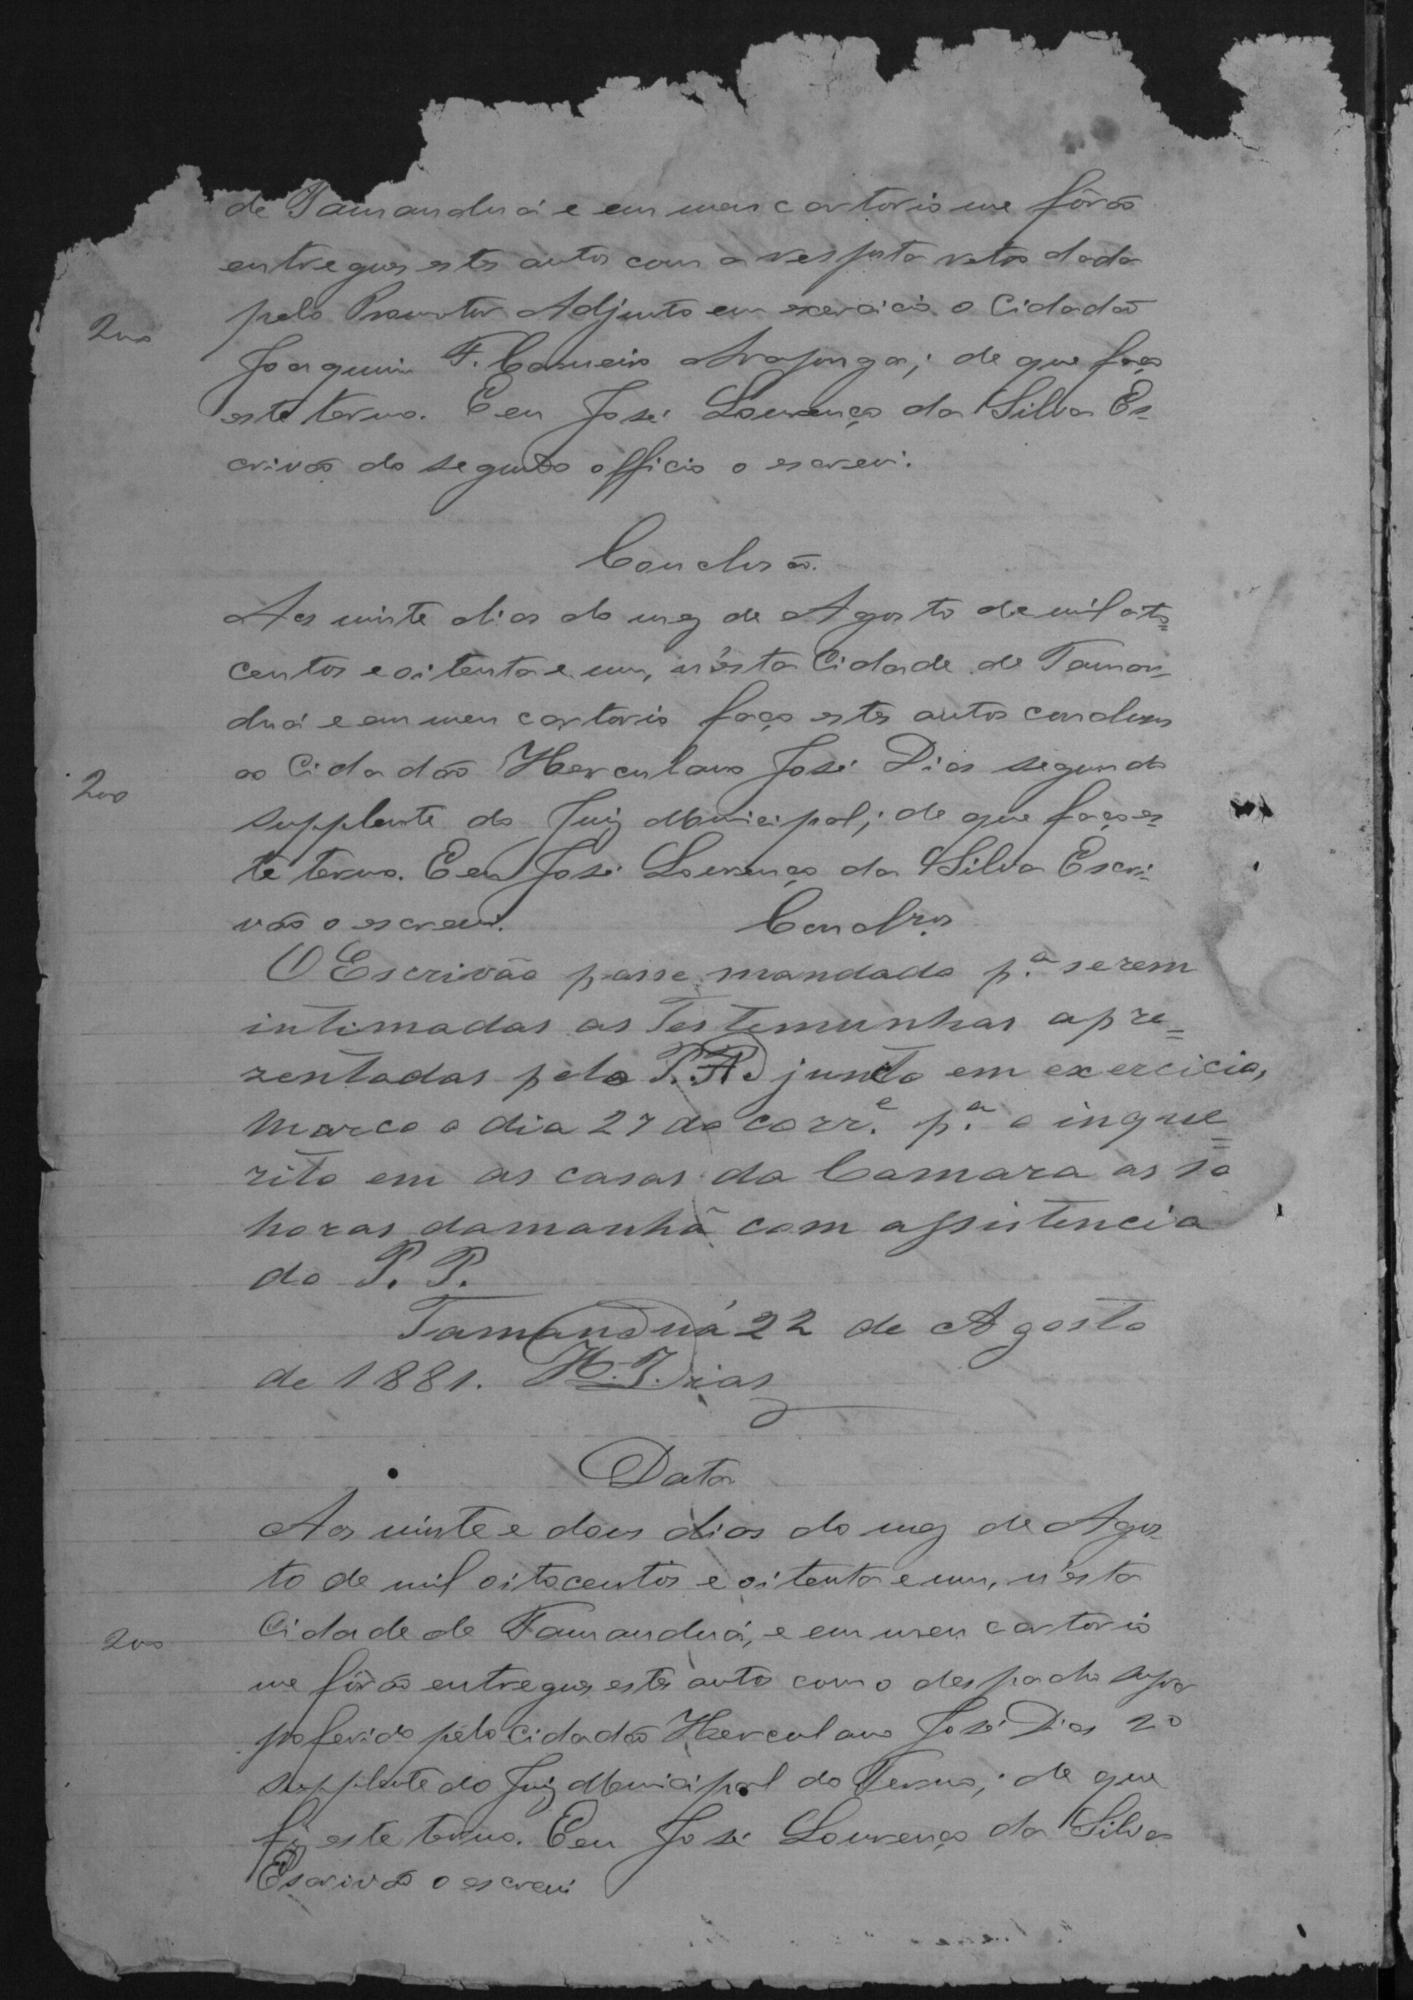 de Tamanduá e em meu cartorio me fôrão
entregues estes autos com a resposta retro dada
pelo Promotor Adjunto em exercicio o Cidadão
200
Joaquim F. Carneiro Araponga; de que faço
este termo. E eu José Lourenço da Silva Es-
crivão do segundo officio o escrevi.
Conclusão.
Aos vinte dias do mez de Agosto de mil oito=
centos e oitenta e um, n'ésta Cidade de Taman-
duá e em meu cartorio faço estes autos conclusos
ao Cidadão Herculano José Dias segundo
200
supplente do Juiz Municipal; de que faço es-
te termo. E eu José Lourenço da Silva Escri-
vão o escrevi. Conclzos
O Escrivão passe mandado p.ª serem
intimadas as Testemunhas apre=
zentadas pelo P. P. Adjunto em exercicio,
marco o dia 27 do corr.e p.ª o inque=
rito em as casas da Camara as 10
horas da manhã com assistencia
do P. P.
Tamanduá 22 de Agosto
de 1881. H. J. Dias
Data
Aos vinte e dous dias do mez de Agos-
to de mil oitocentos e oitenta e um, n'ésta
Cidade de Tamanduá, e em meu cartorio
200
me fôrão entregues estes autos com o despacho supra
proferido pelo Cidadão Herculano José Dias 2º
supplente do Juiz Municipal do Termo; de que
fiz este termo. E eu José Lourenço da Silva
Escrivão o escrevi